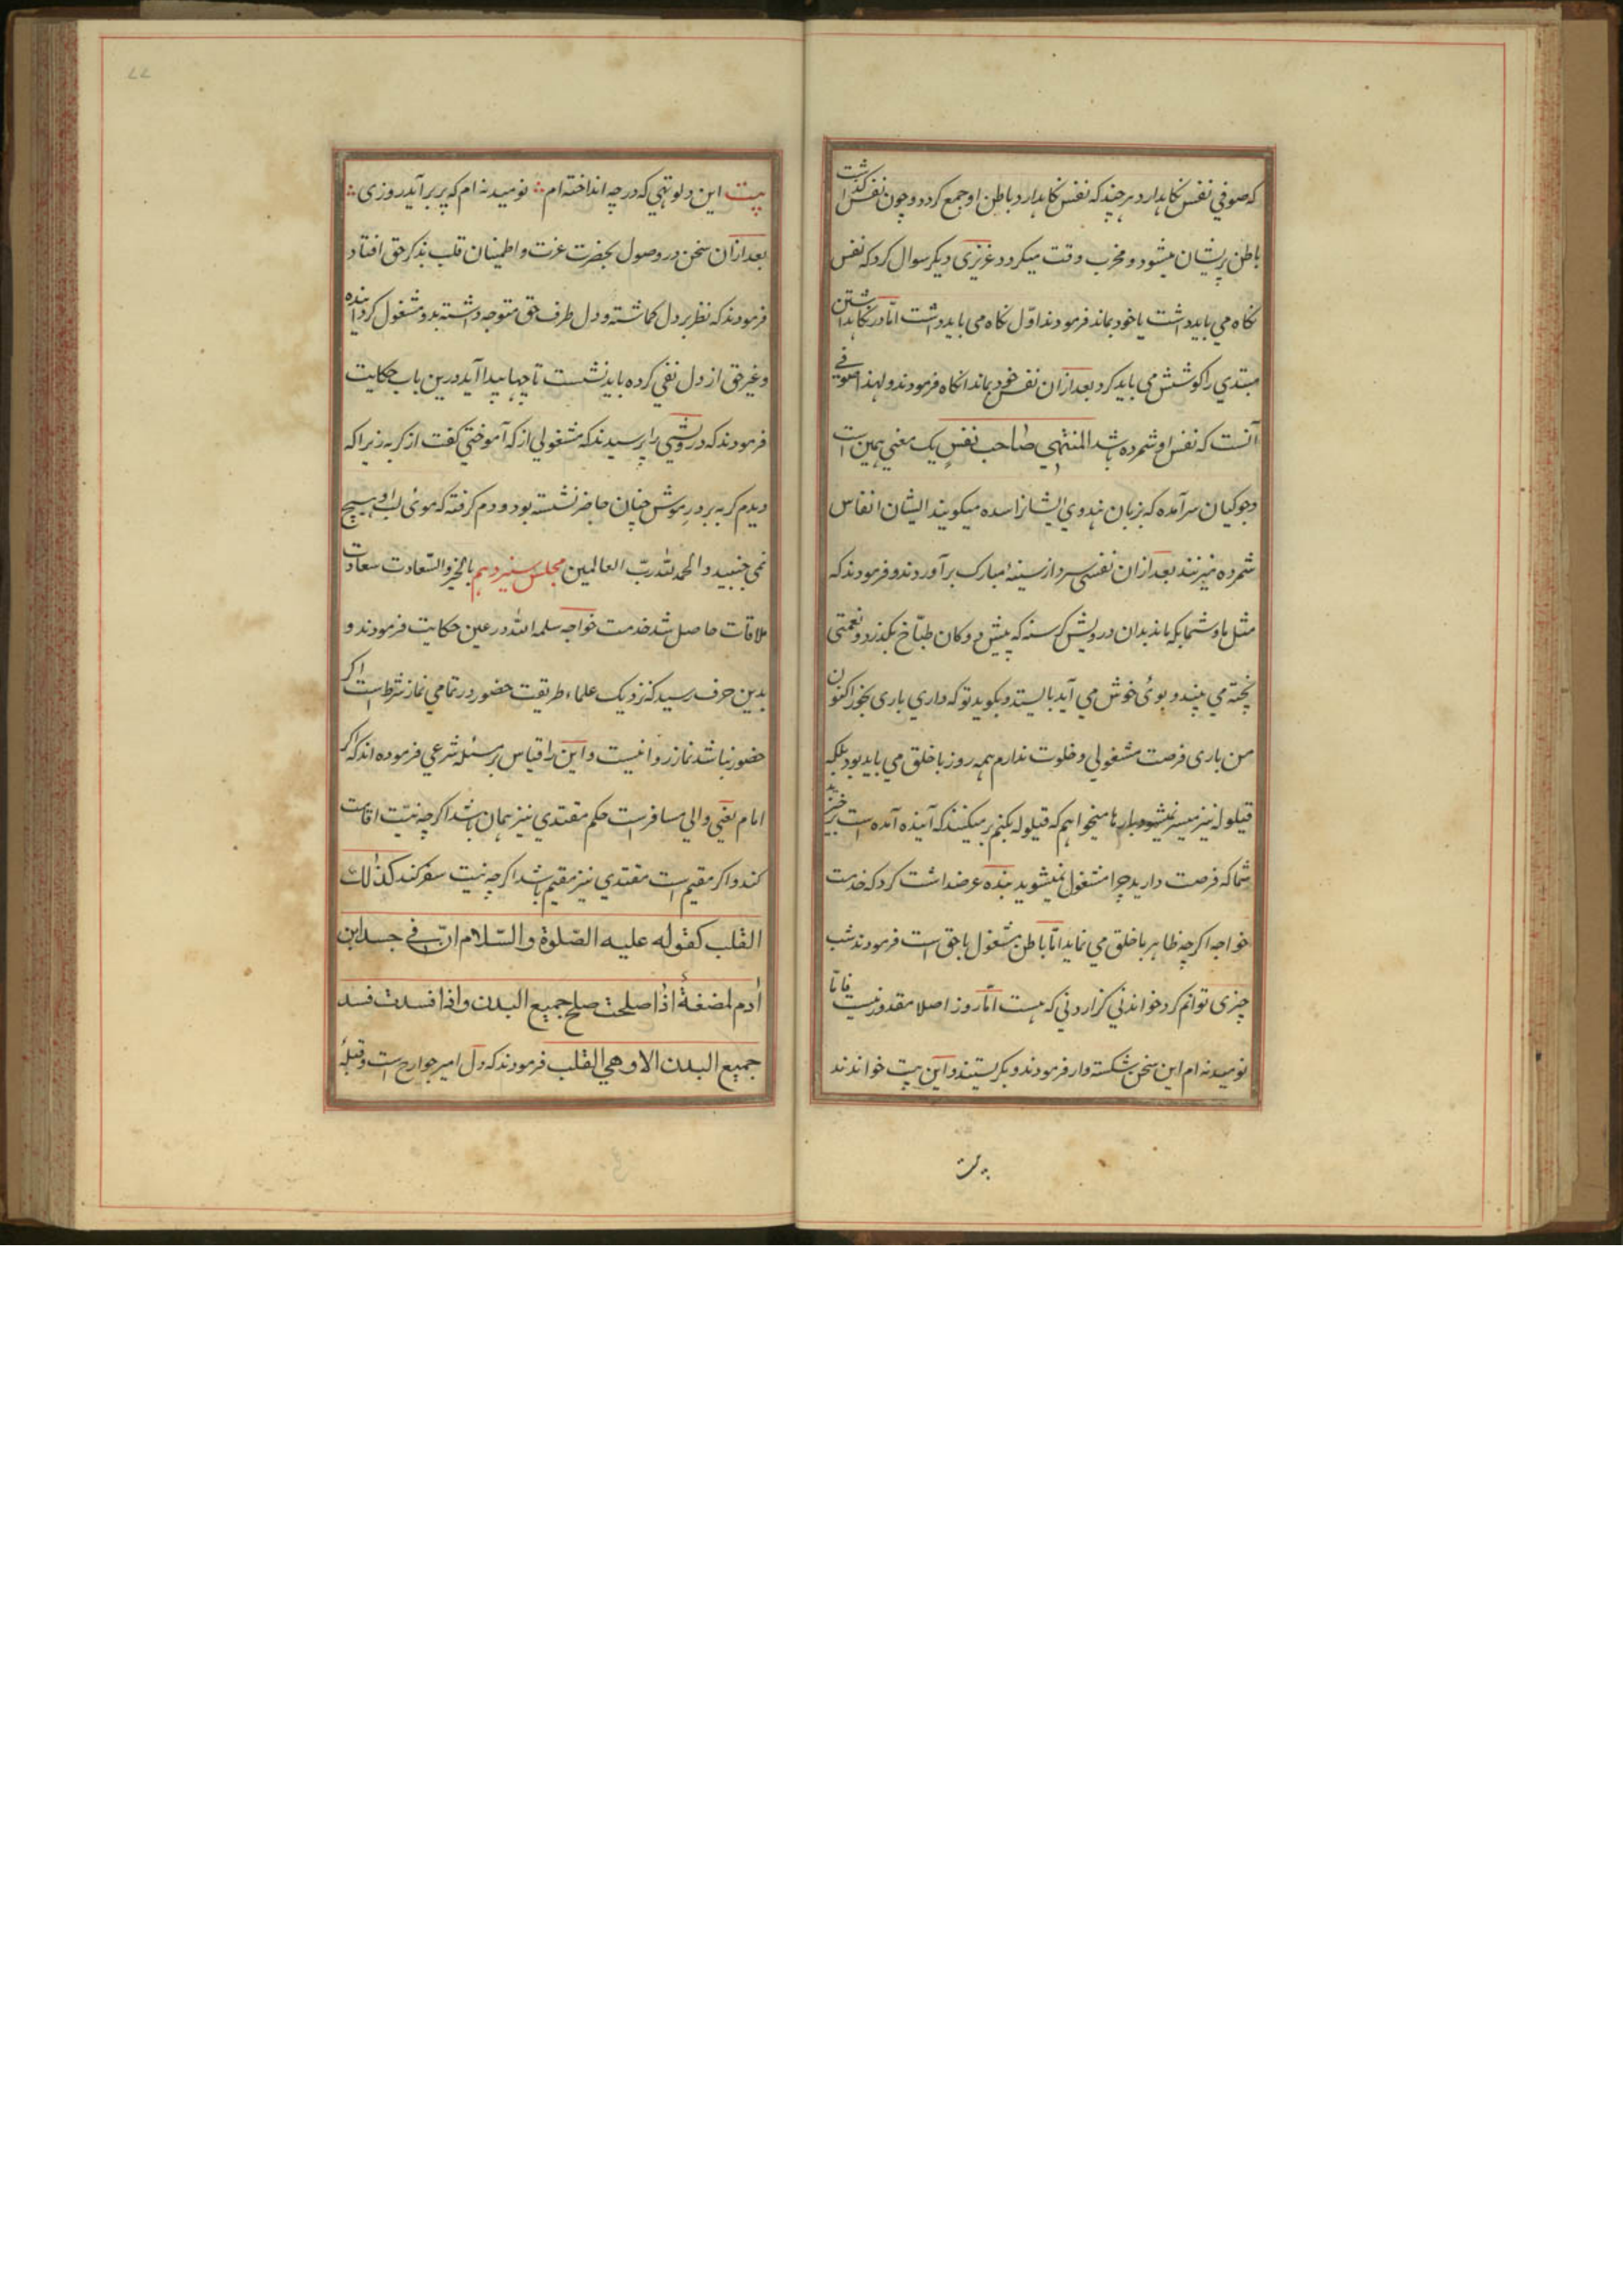 که صوفی نفس نکاهدارد هرچند که نفس نکاهدارد باطن او جمع کردد و چون نفس کذاشت
باطن پریشان میشود و مخرب وقت میکردد عزیزی دیکر سوال کرد که نفس
نکاه می باید داشت یا خود بماند فرمودند اوّل نکاه می باید داشت امّا در نکاهداشتن
مبتدی را کوشش می باید کرد بعد ازان نفس خود بماند انکاه فرمودند و لهذا صوفی
آنست که نفس او شمرده باشد المنتهی صاحب نفس یک معنی همین است
و جوکیان سرآمده که بزبان هندوی ایشانرا سده میکویند ایشان انفاس
شمرده میزنند بعد ازان نفسی سرد از سینۀ مبارک برآوردند و فرمودند که
مثل ما و شما بکه ماند بدان درویش کرسنه که پیش دوکان طبّاخ بکذرد و نعمتی
پخته می بیند و بوئ خوش می آید بایستد و بکوید تو که داری باری بخور اکنون
من باری فرصت مشغولی و خلوت ندارم همه روز با خلق می باید بود بلکه
قیلوله نیز میسر نمیشود بارها میخواهم که قیلوله بکنم بر میکنند که آینده آمده است برخیزید
شما که فرصت دارید چرا مشغول نمیشوید بنده عرضداشت کرد که خدمت
خواجه اکرچه ظاهر با خلق می نماید امّا باطن مشغول با حق است فرمودند شب
چیزی توانم کرد خواندنی کزاردنی که هست امّا روز اصلا مقدور نیست فامّا
نومید نه ام این سخن شکسته وار فرمودند و بکریستند و این بیت خواندند
بیت
بیت این دلو تهی که در چه انداخته ام نومید نه ام که پر برآید روزی
بعد ازان سخن در وصول بحضرت عزت و اطمینان قلب بذکر حق افتاد
فرمودند که نظر بر دل کماشته و دل طرف حق متوجه داشته بدو مشغول کردانیده
و غیر حق از دل نفی کرده باید نشست تا چها پیدا آید درین باب حکایت
فرمودند که درویشی را پرسیدند که مشغولی از که آموختی کفت از کربه زیرا که
دیدم کربه بر در موش چنان حاضر نشسته بود و دم کرفته که موئ لب او هیچ
نمی جنبید و الحمد لله ربّ العالمین مجلس سیزدهم بالخیر والسّعادت سعادت
ملاقات حاصل شد خدمت خواجه سلمه الله در عین حکایت فرمودند و
بدین حرف رسید که نزدیک علماء طریقت حضور در تمامی نماز شرط است اکر
حضور نباشد نماز روا نیست و این را قیاس بر مسئله شرعی فرموده اند که اکر
امام یعنی والی مسافر است حکم مقتدی نیز همان باشد اکرچه نیّت اقامت
کند و اکر مقیم است مقتدی نیز مقیم باشد اکرچه نیت سفر کند کذالک
القلب کقوله علیه الصّلوة والسّلام انّ فی جسد ابن
اٰدم لمضغةً اذا صلحت صلح جمیع البدن واذا فسدت فسد
جمیع البدن الا وهی القلب فرمودند که دل امیر جوارح است و قبلۀ